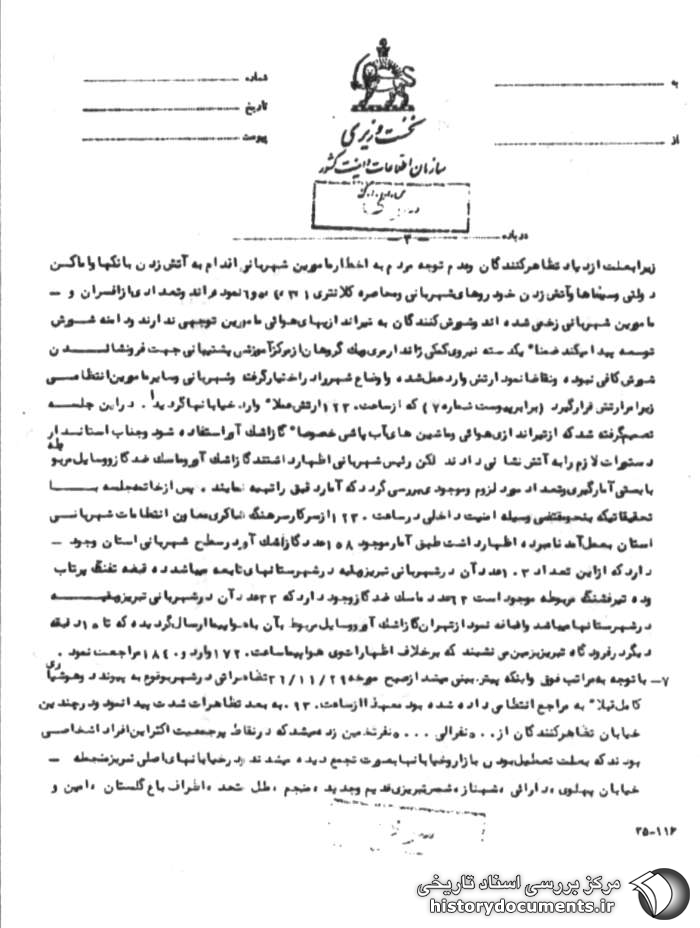 به
شماره
تاریخ
از
پیوست
نخست وزیری
سازمان اطلاعات و امنیت کشور
درباره
- ۳ -
زیرا بعلت ازدیاد تظاهرکنندگان وعدم توجه مردم به اخطار مامورین شهربانی اقدام به آتش زدن بانکها و اماکن
دولتی وسینماها وآتش زدن خودروهای شهربانی ومحاصره کلانتری نموده اند وتعدادی از افسران و -
مامورین شهربانی زخمی شده اند وشورش کنندگان به تیراندازیهای هوائی مامورین توجهی ندارند ودامنه شورش
توسعه پیدا میکند ضمنا" یکدسته نیروی کمکی ژاندارمری ویک گروهان از مرکز آموزشی پشتیبانی جهت فرونشاندن
شورش کافی نبوده وتقاضا نمود ارتش وارد عمل شده واوضاع شهر را در اختیار گرفته وشهربانی وسایر مامورین انتظامی
زیر امر ارتش قرار گیرد (برابر پیوست شماره ۷) که از ساعت ۱۲۳۰ ارتش عملا" وارد خیابانها گردید. در این جلسه
تصمیم گرفته شد که از تیراندازی هوائی وماشین های آب پاشی خصوصا" گاز اشک آور استفاده شود وجناب استاندار
دستورات لازم را به آتش نشانی دادند لکن رئیس شهربانی اظهار داشتند گاز اشک آور وماسک ضد گاز ووسایل مربوطه
بایستی آمارگیری وتعداد مورد لزوم وموجودی بررسی گردد که آمار دقیق را تهیه نمایند . پس از خاتمه جلسه با
تحقیقاتیکه بنحو مقتضی وسیله امنیت داخلی در ساعت ۱۲۳۰ از سرکار سرهنگ معاون انتظامات شهربانی
استان بعمل آمد نامبرده اظهار داشت طبق آمار موجود ۱۵۸ عدد گاز اشک آور در سطح شهربانی استان وجود -
دارد که از این تعداد ۱۰۳ عدد آن در شهربانی تبریز وبقیه در شهرستانهای تابعه میباشد ده قبضه تفنگ پرتاب
وده تیر فشنگ مربوطه موجود است ۶۲ عدد ماسک ضد گاز وجود دارد که ۲۲ عدد آن در شهربانی تبریز وبقیه
در شهرستانها میباشد واضافه نمود از تهران گاز اشک آور ووسایل مربوط بآن با هواپیما ارسال گردیده که تا ۱۵ دقیقه
دیگر در فرودگاه تبریز بزمین می نشیند که برخلاف اظهارات وی هواپیما ساعت ۱۷۲۰ وارد و ۱۸۴۰ مراجعت نمود .
۷- با توجه به مراتب فوق واینکه پیش بینی میشد از صبح مورخه ۳۶/۱۱/۲۹ تظاهراتی در شهر بوقوع به پیوندد وهوشیاری
کامل قبلا" به مراجع انتظامی داده شده بود معهذا از ساعت ۰۹۳۰ به بعد تظاهرات شدت پیدا نمود ودر چندین
خیابان تظاهرکنندگان از ۵۰۰ نفر الی نفر تخمین زده میشد که در نقاط پرجمعیت اکثر این افراد اشخاصی
بودند که بعلت تعطیل بودن بازار وخیابانها بصورت تجمع دیده میشدند ودر خیابانهای اصلی تبریز منجمله -
خیابان پهلوی ،دارائی ،شهناز ،شمس تبریزی قدیم وجدید ،منجم ، ،اطراف باغ گلستان ،امین و
۳۵-۱۱۶
مرکز بررسی اسناد تاریخی
historydocuments.ir